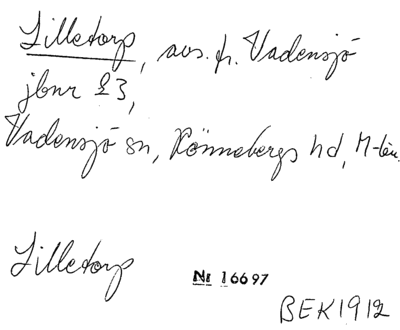 Lilletorp, avs. fr. Vadensjö
jbnr 23,
Vadensjö sn, Rönnebergs hd, M-län.
Lilletorp
Nr 16697
BEK1912